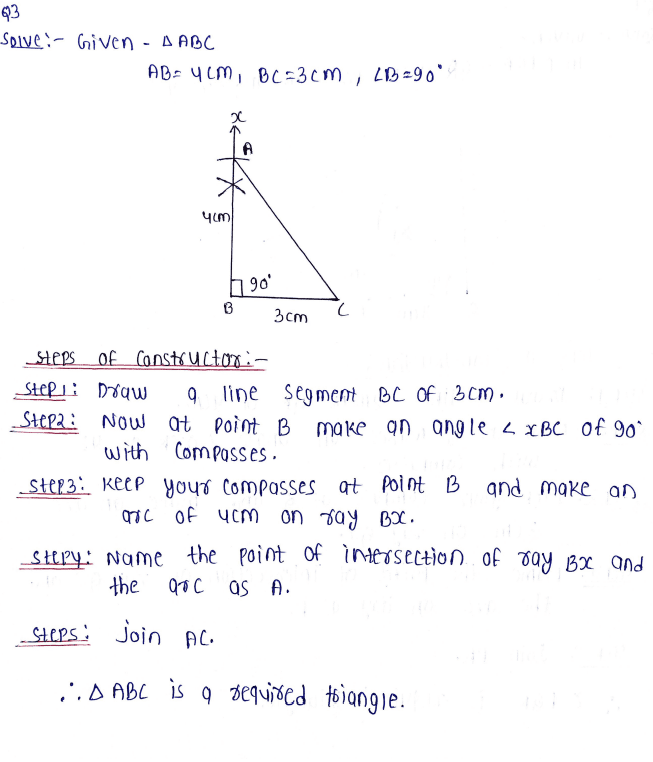 Q3
Solve:- Given - △ABC
AB= 4cm, BC=3cm, ∠B=90°
x
A
4cm
90°
B
C
3cm
Steps of Constructor:-
Step1: Draw a line segment BC of 3cm.
Step2: Now at point B make an angle ∠xBC of 90°
with compasses.
Step3: Keep your compasses at point B and make an
arc of 4cm on ray Bx.
Step4: Name the point of intersection of ray Bx and
the arc as A.
Step5: Join AC.
∴ △ ABC is a required triangle.